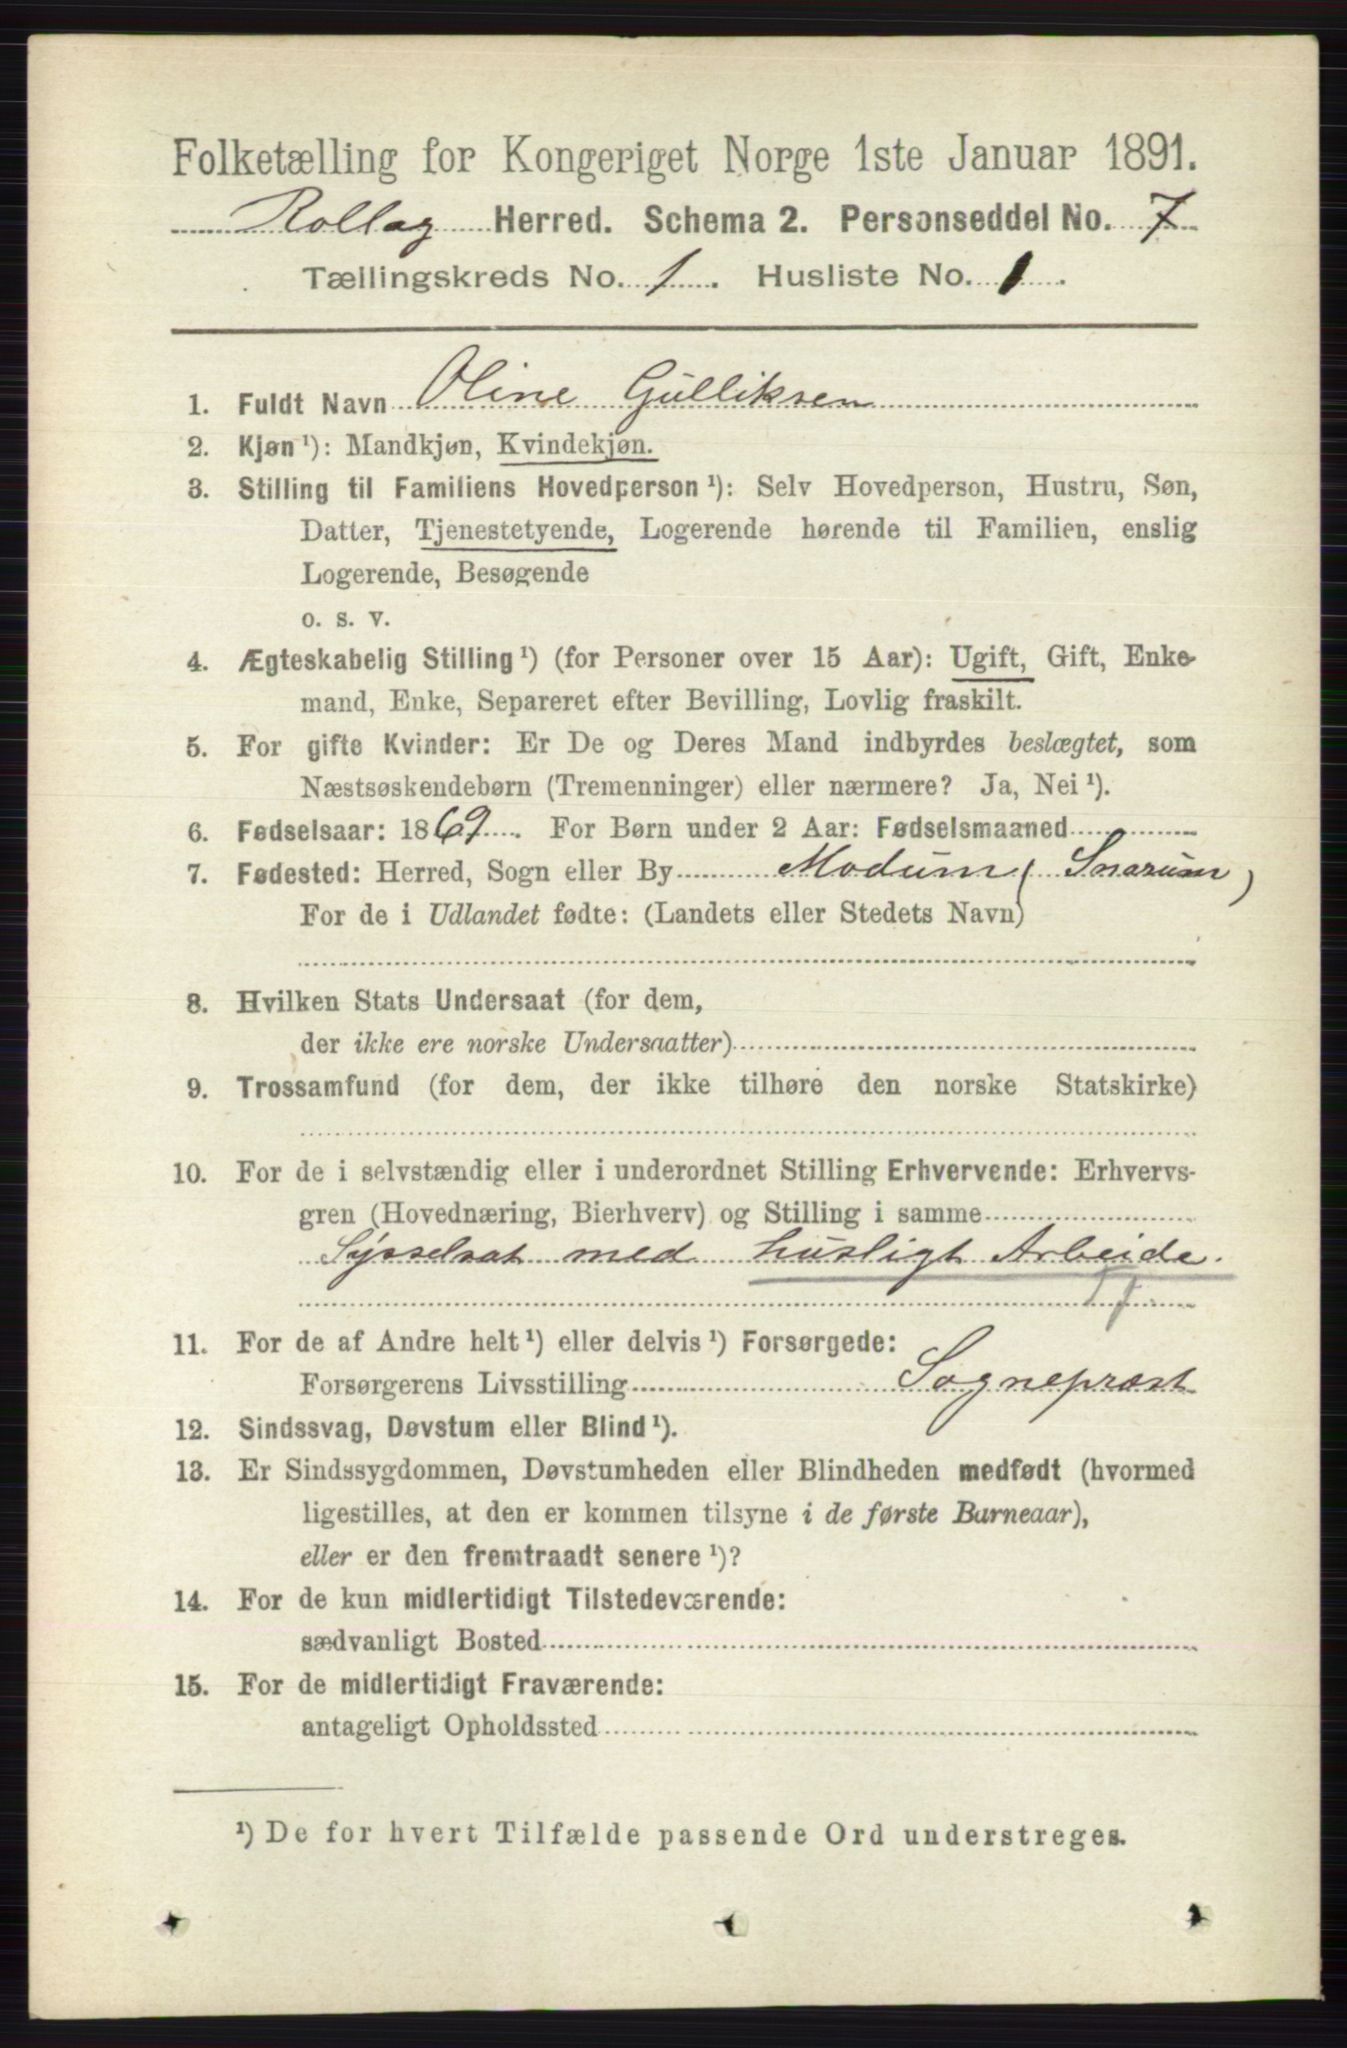 Folketælling for Kongeriget Norge 1ste Januar 1891.
Rollag Herred. Schema 2. Personseddel No. 7
Tællingskreds No. 1. Husliste No. 1.
1. Fuldt Navn Oline Gulliksen
2. Kjøn ¹): Mandkjøn, Kvindekjøn.
3. Stilling til Familiens Hovedperson ¹): Selv Hovedperson, Hustru, Søn,
Datter, Tjenestetyende, Logerende hørende til Familien, enslig
Logerende, Besøgende
o. s. v.
4. Ægteskabelig Stilling ¹) (for Personer over 15 Aar): Ugift, Gift, Enke-
mand, Enke, Separeret efter Bevilling, Lovlig fraskilt.
5. For gifte Kvinder: Er De og Deres Mand indbyrdes beslægtet, som
Næstsøskendebørn (Tremenninger) eller nærmere? Ja, Nei ¹).
6. Fødselsaar: 1869. For Børn under 2 Aar: Fødselsmaaned
7. Fødested: Herred, Sogn eller By Modum (Snarum)
For de i Udlandet fødte: (Landets eller Stedets Navn)
8. Hvilken Stats Undersaat (for dem,
der ikke ere norske Undersaatter)
9. Trossamfund (for dem, der ikke tilhøre den norske Statskirke)
10. For de i selvstændig eller i underordnet Stilling Erhvervende: Erhvervs-
gren (Hovednæring, Bierhverv) og Stilling i samme
Sysselsat med husligt Arbeide.
11. For de af Andre helt ¹) eller delvis ¹) Forsørgede:
Forsørgerens Livsstilling Sognepræst
12. Sindssvag, Døvstum eller Blind ¹).
13. Er Sindssygdommen, Døvstumheden eller Blindheden medfødt (hvormed
ligestilles, at den er kommen tilsyne i de første Barneaar),
eller er den fremtraadt senere ¹)?
14. For de kun midlertidigt Tilstedeværende:
sædvanligt Bosted
15. For de midlertidigt Fraværende:
antageligt Opholdssted
¹) De for hvert Tilfælde passende Ord understreges.